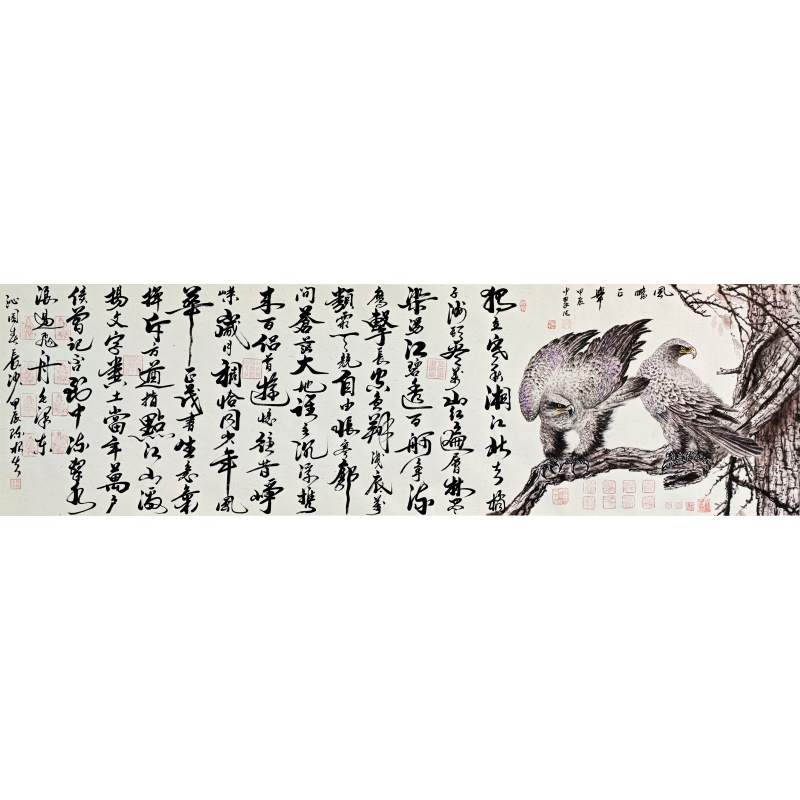 風鵬正舉
甲辰
獨立寒秋湘江北去橘
子洲頭看萬山紅遍層林盡
染漫江碧透百舸爭流
鷹擊長空魚翔淺底萬
類霜天競自由悵寥廓
問蒼茫大地誰主沉浮攜
來百侶曾遊憶往昔崢
嶸歲月稠恰同學少年風
華正茂書生意氣
揮斥方遒指點江山激
揚文字糞土當年萬戶
侯曾記否到中流擊水
浪遏飛舟毛澤東
沁園春長沙甲辰